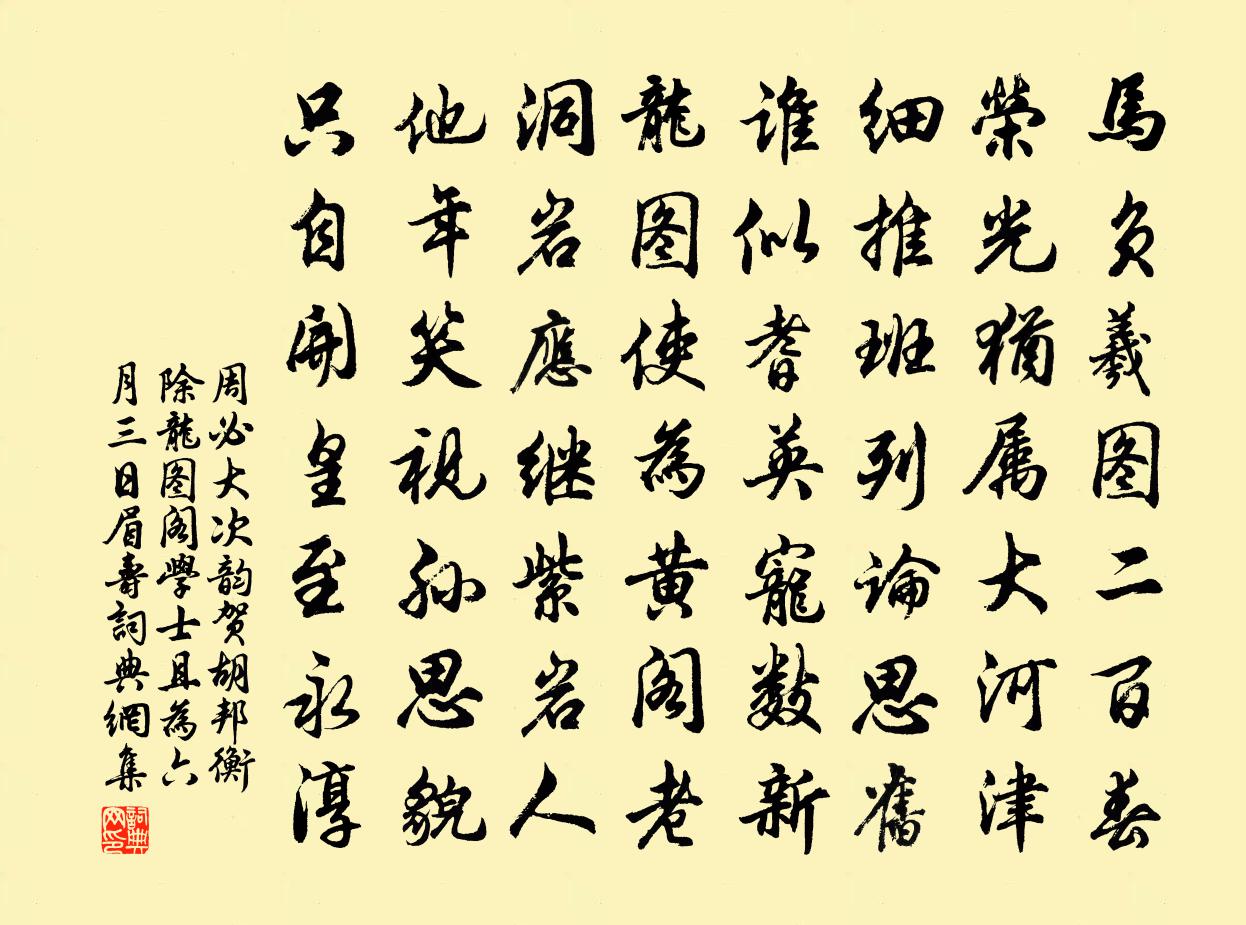 馬負羲图二百春
榮光猶属大河津
細推班列論思舊
誰似耆英寵数新
龍图使為黄阁老
洞岩應继紫岩人
他年笑視孙思貌
只自開皇至永淳
周必大次韵贺胡邦衡
除龍图阁學士且為六
月三日眉壽詞典網集
詞典網印